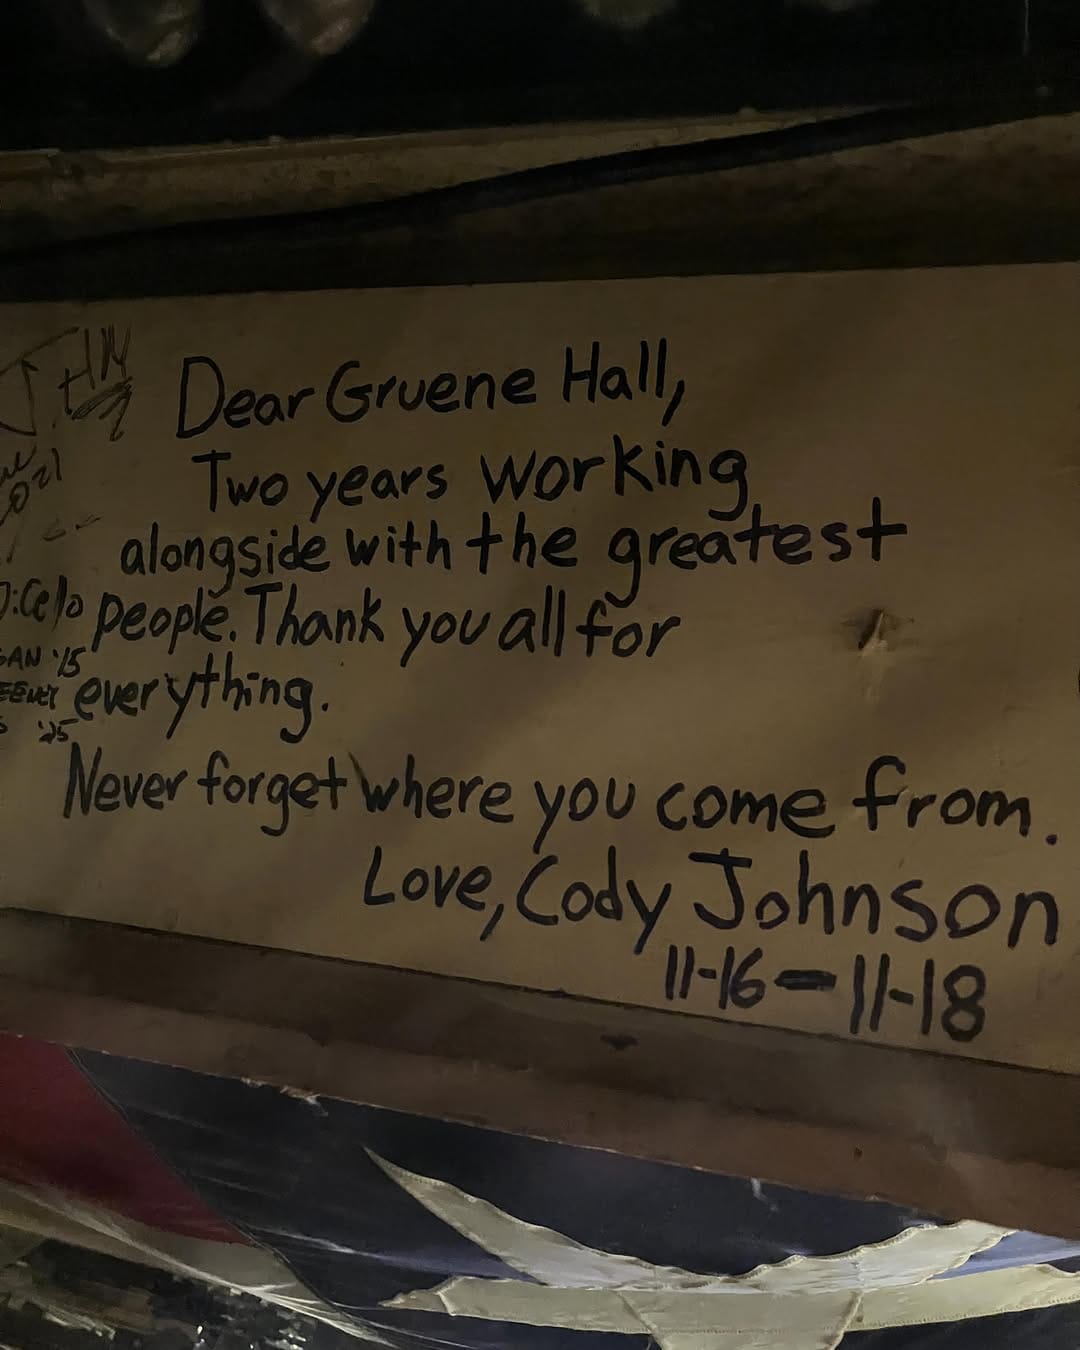 Dear Gruene Hall,
Two years working
alongside with the greatest
people. Thank you all for
everything.
Never forget where you come from.
Love, Cody Johnson
11-16 - 11-18
'15
'25